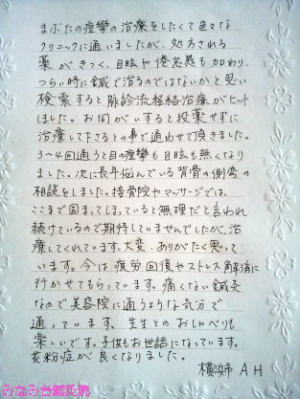 まぶたの痙攣の治療をしたくて色々な
クリニックに通いましたが、処方される
薬がきつく、目眩や倦怠感も加わり、
つらい時に鍼で治るのではないかと思い
検索すると脉診流経絡治療がヒット
しました。お伺いすると投薬せずに
治療して下さるとの事で通わせて頂きました。
3〜4回通うと目の痙攣も目眩も無くなり
ました。次に長年悩んでいる背骨の側弯の
相談をしました。接骨院やマッサージでは、
ここまで固まってしまっていると無理だと言われ
続けているので期待していませんでしたが、治
療してくれています。大変、ありがたく思って
います。今は疲労回復やストレス解消に
行かせてもらっています。痛くない鍼灸
なので美容院に通うような気分で
通っています。先生とのおしゃべりも
楽しいです。子供もお世話になっています。
花粉症が良くなりました。
横浜市 A H
みなみ台鍼灸院